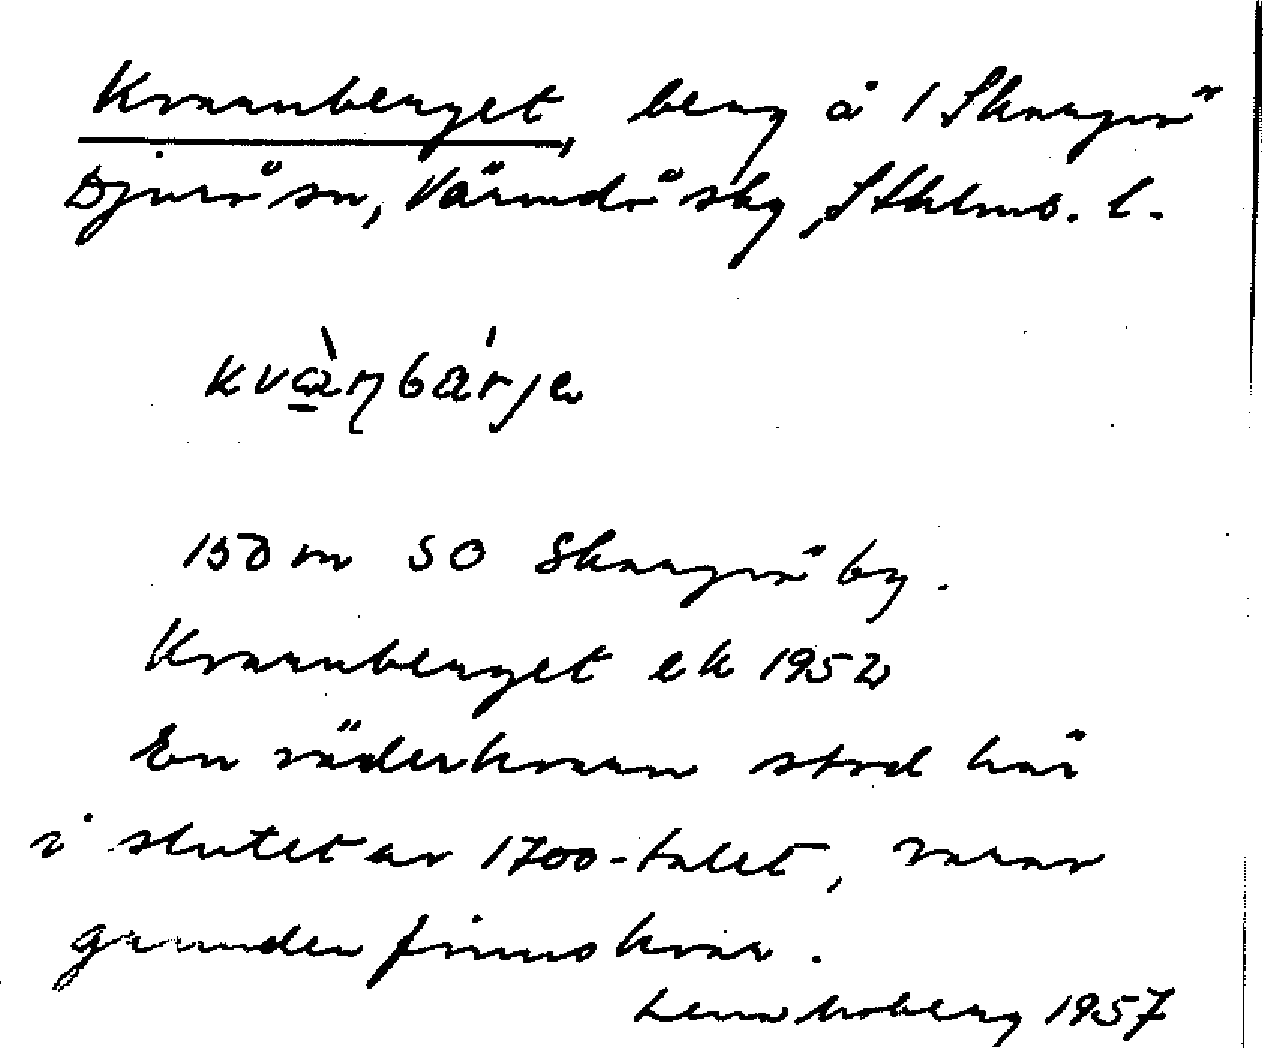 Kvarnberget, berg å 1 Skarpö
Djurö sn, Värmdö skg, Sthlms. l.
kvàɳbárjə
150 m SO Skarpö by.
Kvarnberget ek 1952
En väderkvarn stod här
i slutet av 1700-talet, varav
grunden finns kvar.
Lena Moberg 1957